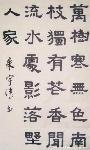 萬樹寒無色南
枝獨有花香聞
流水處影落野
人家